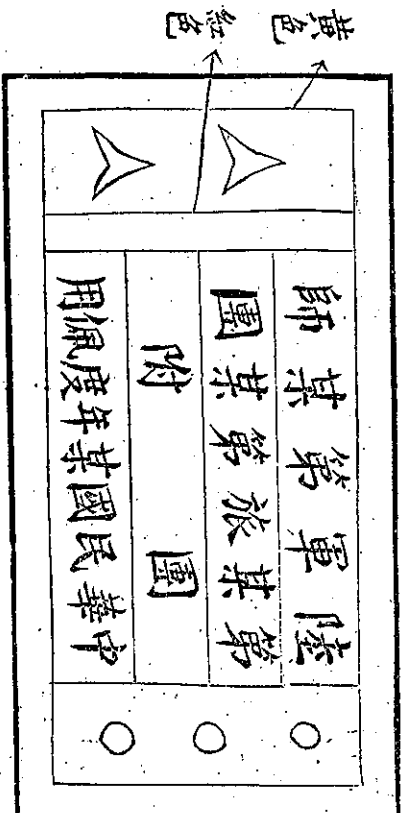 黃色
紅色
陸軍第某師
第某旅第某團
團附
中華民國某年度佩用